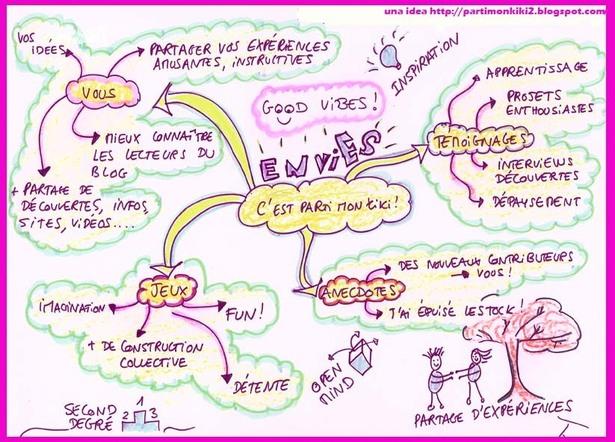 una idea http://partimonkiki2.blogspot.com
VOS
IDÉES
PARTAGER VOS EXPÉRIENCES
AMUSANTES, INSTRUCTIVES
VOUS
MIEUX CONNAÎTRE
LES LECTEURS DU
BLOG
+ PARTAGE DE
DÉCOUVERTES, INFOS,
SITES, VIDÉOS....
GOOD VIBES!
INSPIRATION
ENVIES
C'EST PARTI MON KIKI!
TEMOIGNAGES
APPRENTISSAGE
PROJETS
ENTHOUSIASTES
INTERVIEWS
DÉCOUVERTES
DÉPAYSEMENT
JEUX
IMAGINATION
FUN!
+ DE CONSTRUCTION
COLLECTIVE
DÉTENTE
ANECDOTES
DES NOUVEAUX CONTRIBUTEURS
VOUS!
J'AI ÉPUISÉ LE STOCK!
OPEN
MIND
PARTAGE D'EXPÉRIENCES
SECOND
DEGRÉ
2 1 3